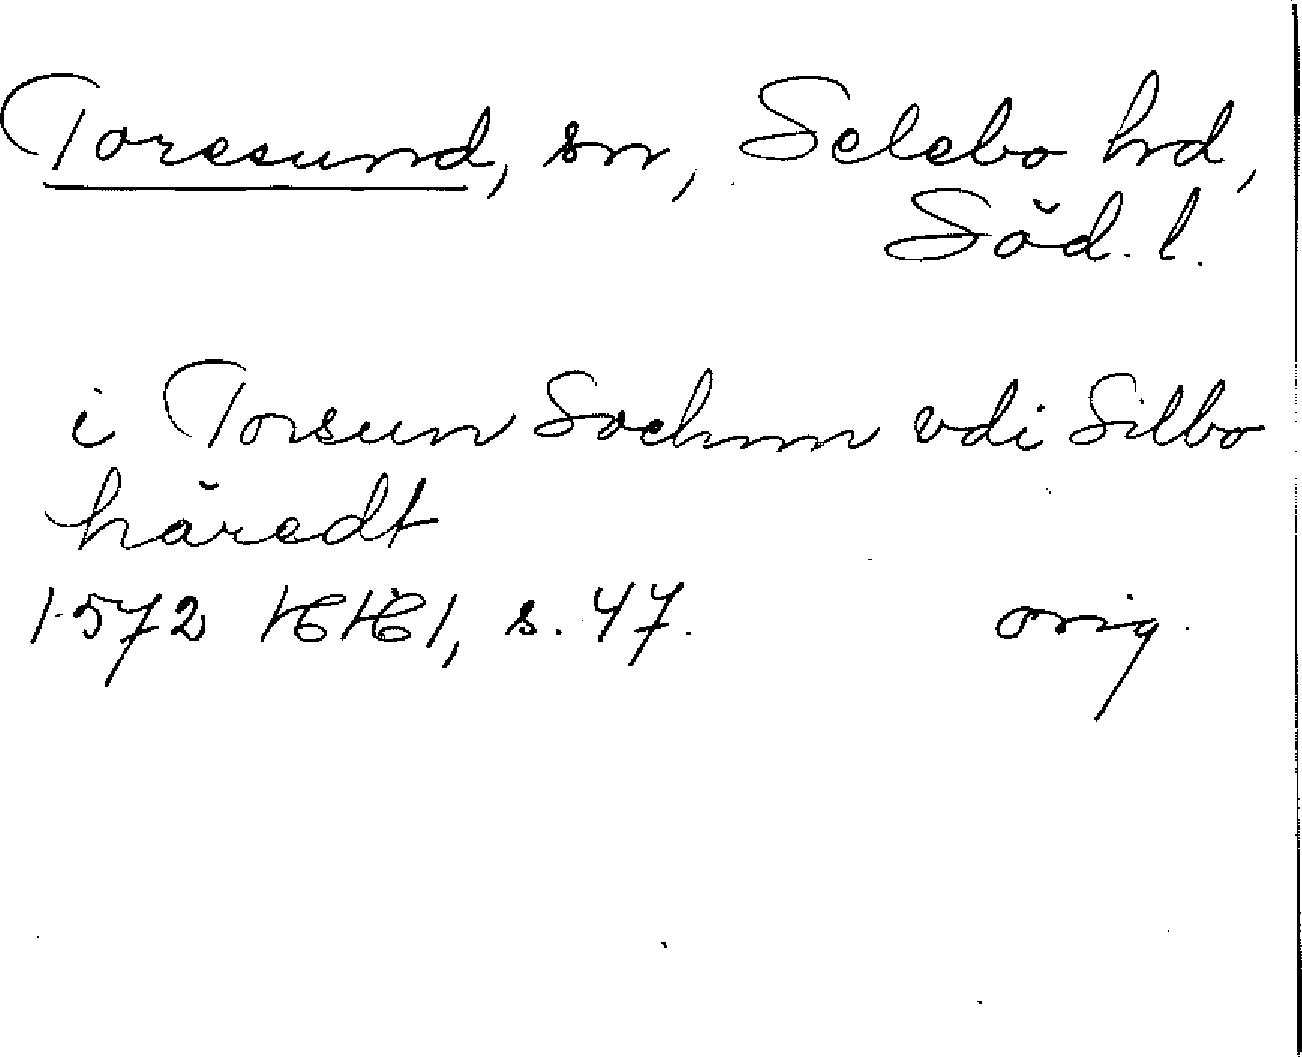 Toresund, sn, Selebo hd,
Söd. l.
i Torsun Sochnn vdi Silbo
häredt
1572 HH1, s. 47. orig.